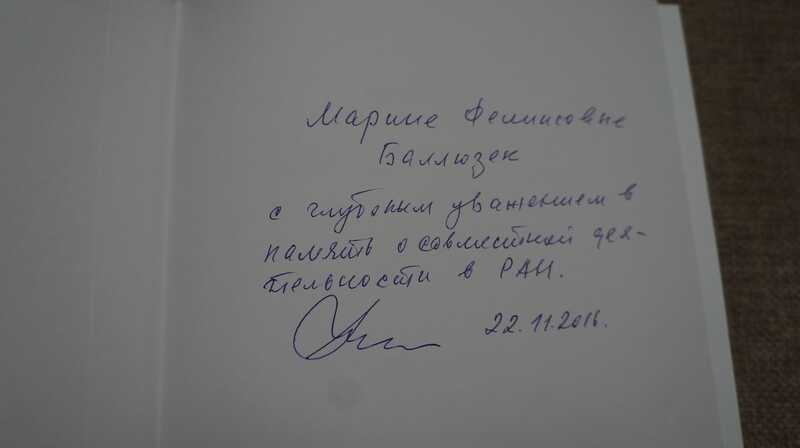 Марине Феликсовне
Баллюзек
с глубоким уважением в
память о совместной дея-
тельности в РАН.
22.11.2016.